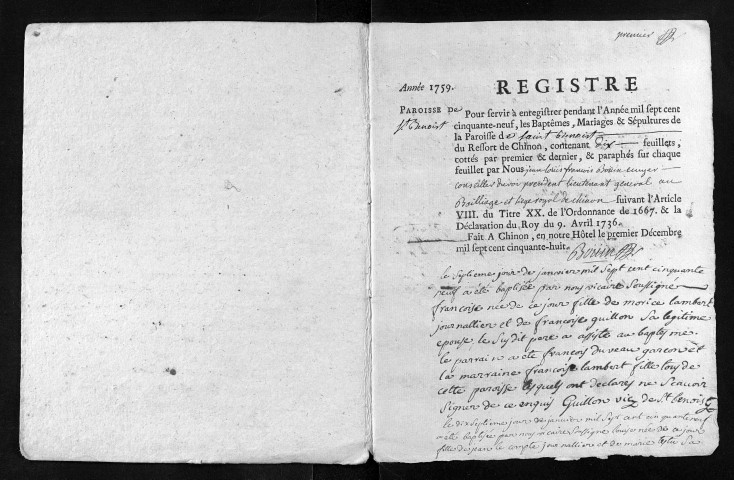 premier
Année 1759. REGISTRE
PAROISSE de
St Benoist
Pour servir à enregistrer pendant l'Année mil sept cent
cinquante-neuf, les Baptêmes, Mariages & Sépultures de
la Paroisse de Saint Benoist
du Ressort de Chinon, contenant dix feuillets,
cottés par premier & dernier, & paraphés sur chaque
feuillet par Nous jean Louis francois Bouin ecuyer
conseiller du roi president lieutenant general au
Bailliage et siege royal de chinon suivant l'Article
VIII. du Titre XX. de l'Ordonnance de 1667. & la
Déclaration du Roy du 9. Avril 1736.
Fait A Chinon, en notre Hôtel le premier Décembre
mil sept cent cinquante-huit.
Bouin
le septieme jour de janvier mil sept cent cinquante
neuf a été baptisée par nous vicaire soussigné
francoise née de ce jour fille de morice lambert
journallier et de francoise guillon sa legitime
epouse le susdit pere a assisté au baptesme
le parrain a été francois duveau garcon et
la marraine francoise lambert fille tous de
cette paroisse lesquels ont declarés ne scavoir
signer de ce enquis Guillon vic de St benoist
le dix septieme jour de janvier mil sept cent cinquante neuf
a été baptisée par nous vicaire soussigné née de ce jour
fille de journallier et de marie sa